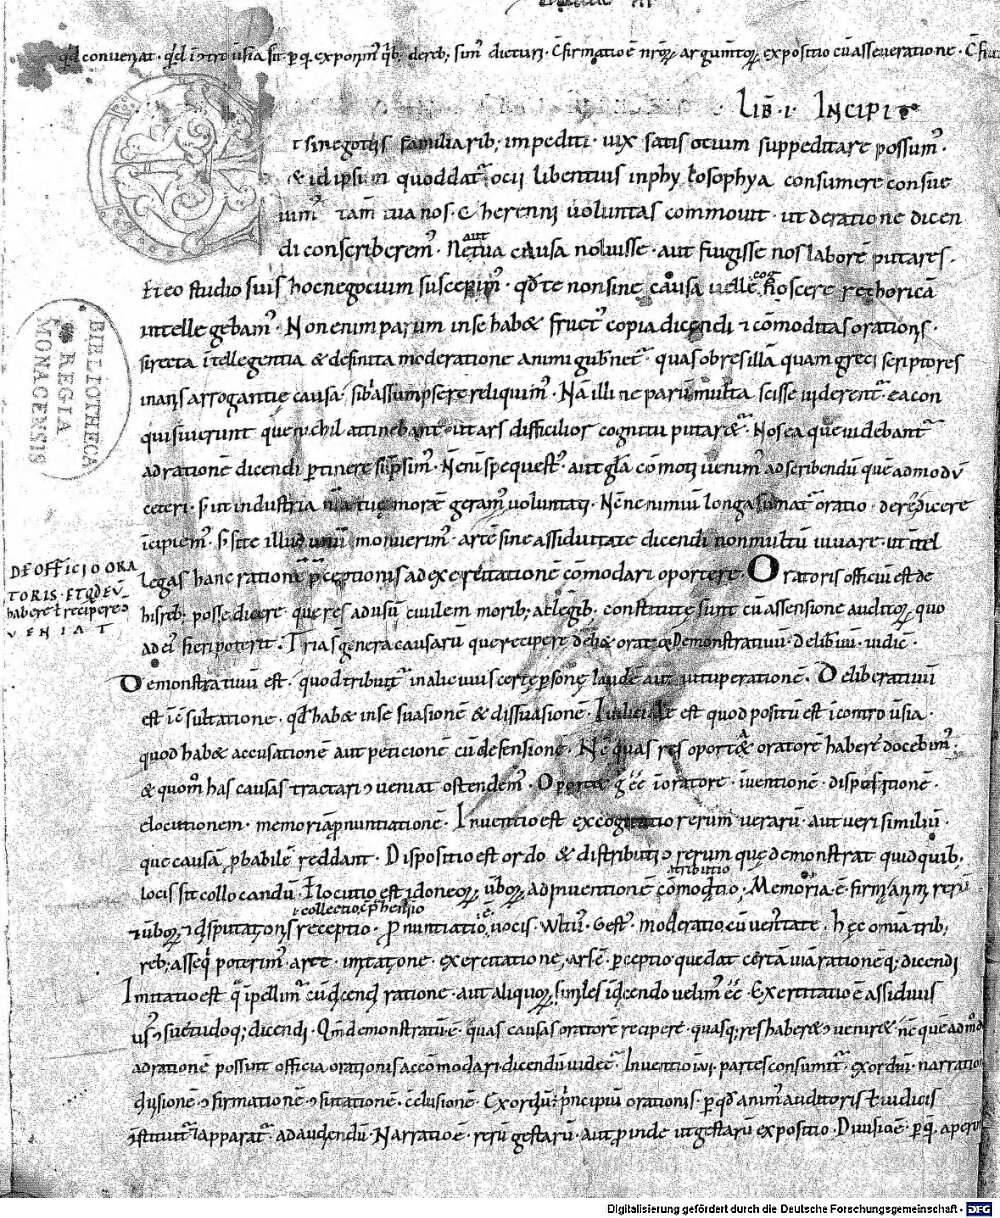 qd convenerat · qđ i ctrovsia sit · p q exponim' qib; dereb; sim' dicturi · Cfirmatio ē nr̄oꝝ argumtoꝝ expositio cū asseveratione ·
LIB̄ · I · INCIPIT
Et si negotiis familiarib; impediti · vix satis otium suppeditare possum' ·
& id ipsum quod dat̄ ocii libentius in phylosophya consumere consue
vim' tam̄ tua nos · C · herenni voluntas commovit · ut de ratione dicen
di conscriberem' · Ne aut tua causa noluisse · aut fugisse nos laborē putares ·
Et eo studio suis hoc negocium suscepim' · qđ te non sine causa velle cognoscere rethoricā
intellegebam' · Non enim parum in se hab& fruct' copia dicendi & cōmoditas orationis ·
si recta ītellegentia & definita moderatione animi gub̄net̄ · quas ob res illā quam greci scriptores
inanis arrogantię causa · sibi assumpsere reliquim' · Nā illi ne parū multa scisse viderent̄ · ea con
quisiverunt quę nichil attinebant · ut ars difficilior cognitu putaret̄ · Nos ea quę videbant̄
ad rationē dicendi ptinere sūpsim' · N enī spe quest' aut glā cōmoti venim' ad scribendū quē admodū
ceteri · s; ut industria nrā tuę morē geram' voluntati · Ne nimiū longa sumat̄ oratio · de re dicere
īcipiem' · s; si te illud unū monuerim' · artē sine assiduitate dicendi non multū iuvare · ut itel
legas hanc rationē pceptionis ad exercitationē cōmodari oportere · Oratoris officiū est de
his reb; posse dicere · quę res ad usū civilem morib; ac legib; constitutę sunt cū assensione auditoꝝ quo
ad ei' fieri poterit · Tria s genera causarū quę recipere deb& orator · Demonstrativū · Delib̄ivū · iudic̄ ·
DE OFFICIO ORA
TORIS · ET QD EV̄
habere t recipere c
VENIAT
Demonstrativū est · quod tribuit̄ in alicuius certę psonę laudē aut vituperationē · Deliberativū
est ī csultatione · qđ hab& in se suasionē & dissuasionē · Iudiciale est quod positū est ī controvsia ·
quod hab& accusationē aut peticionē cū defensione · N c quas res oport& oratorē habere docebim' ·
& quom̄ has causas tractari cveniat ostendem' · Oport& g eē ī oratore · iventionē · dispositionē ·
elocutionem · memoriā pnuntiationē · Inventio est excogitatio rerum verarū · aut veri similiū ·
quę causā pbabilē reddant · Dispositio est ordo & distributio rerum quę demonstrat quid quib;
locis sit collocandū · Elocutio est idoneoꝝ vboꝝ ad inventionē cōmodatio · Memoria ē firma anim̄ rerū
tributio
& vboꝝ & disputationis receptio · Pnuntiatio ē vocis · vultū · gest' · moderatio cū venustate · hęc omīa trib;
t collectio, cphensio
reb; asseq poterim' · arte · imitatione · exercitatione, ars ē · pceptio quę dat certā viā rationēq; dicendi
Imitatio est q īpellim' cū dicendi ratione · aut aliquoꝝ similes ī dicendo velim' eē · Exercitatio ē assiduus
us' csuetudoq; dicendi · Qm̄ demonstratū ē · quas causas oratorē recipere · quasq; res habere cvenir& nc quē admodū
ad rationē possunt officia orationis accōmodari dicendū videt̄ · Inventio ī vi · partes consumit̄ · exordiū · narratio
divisionē · cfirmationē · cfutationē · cclusionē · Exordiū · principiū orationis · p qđ anim' auditoris t iudicis
cstituit̄ t apparat̄ · ad audiendū · Narratio ē · rerū gestarū · aut pinde ut gestarū expositio · Divisio ē · p q · aperi
BIBLIOTHECA
REGIA
MONACENSIS
Digitalisierung gefördert durch die Deutsche Forschungsgemeinschaft - DFG